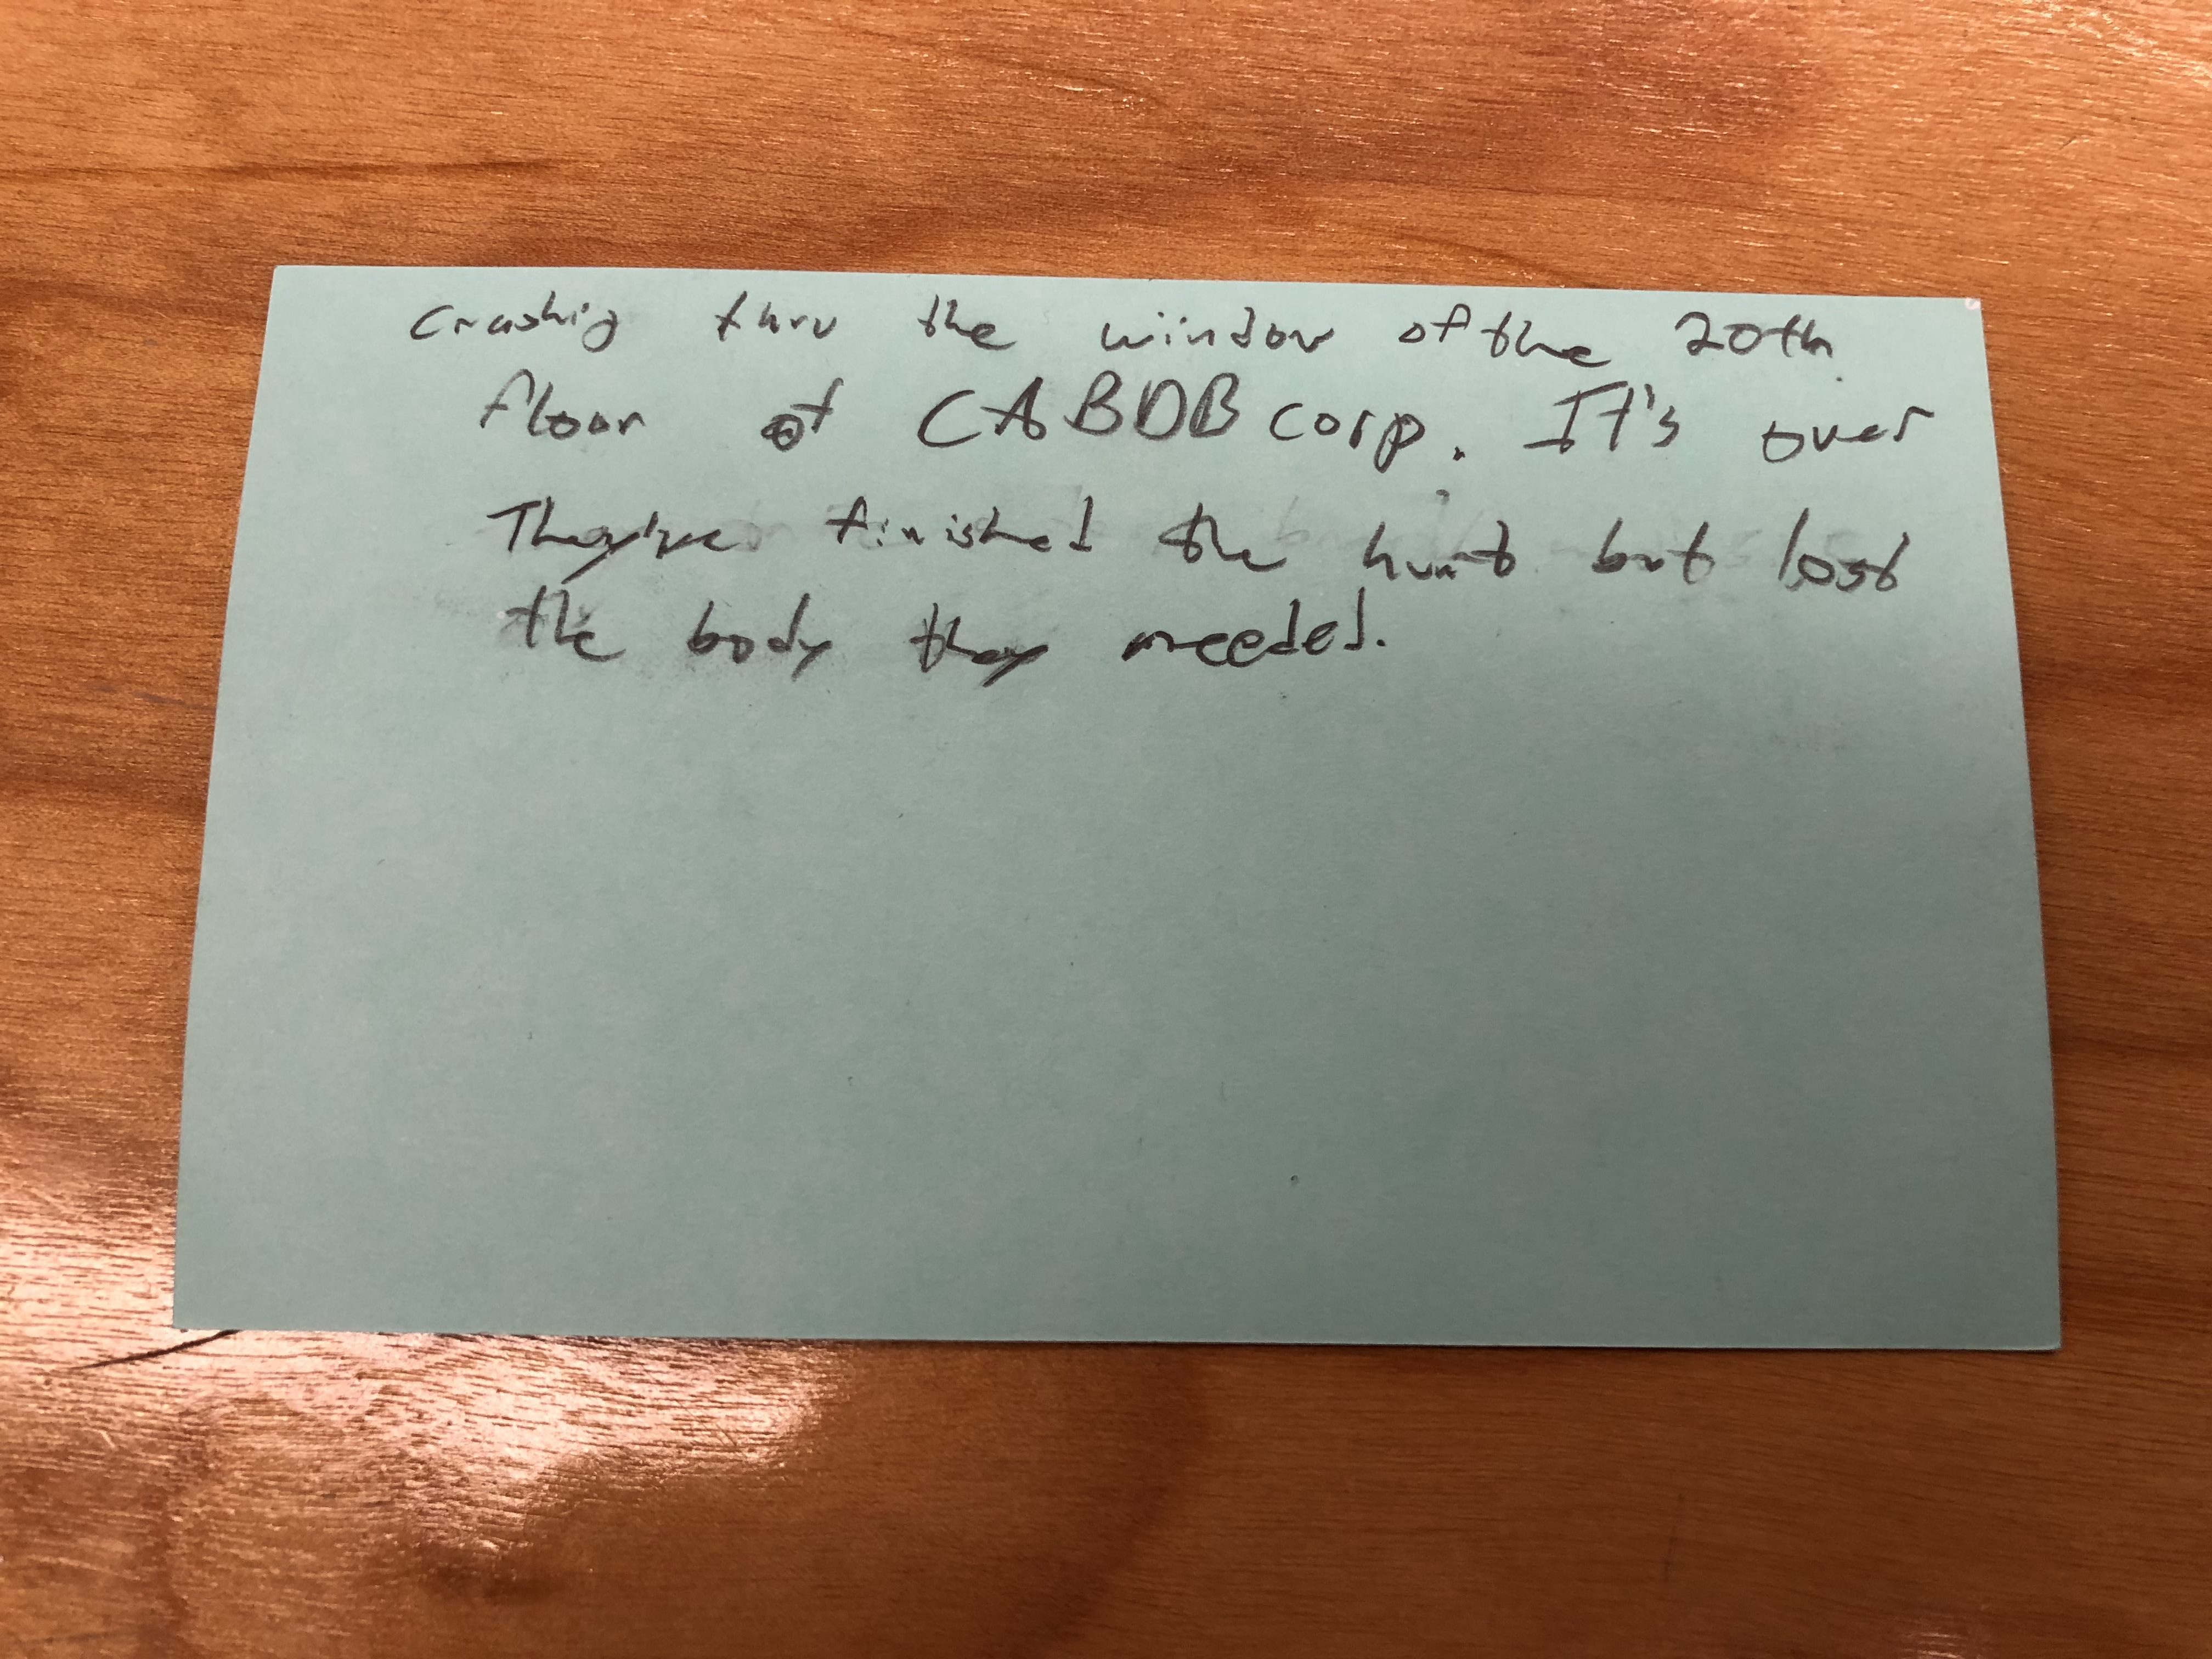 Crashig thru the wiindow of the 20th
floor of CABDB corp. It's over
They've finished the hunt but lost
the body they needed.